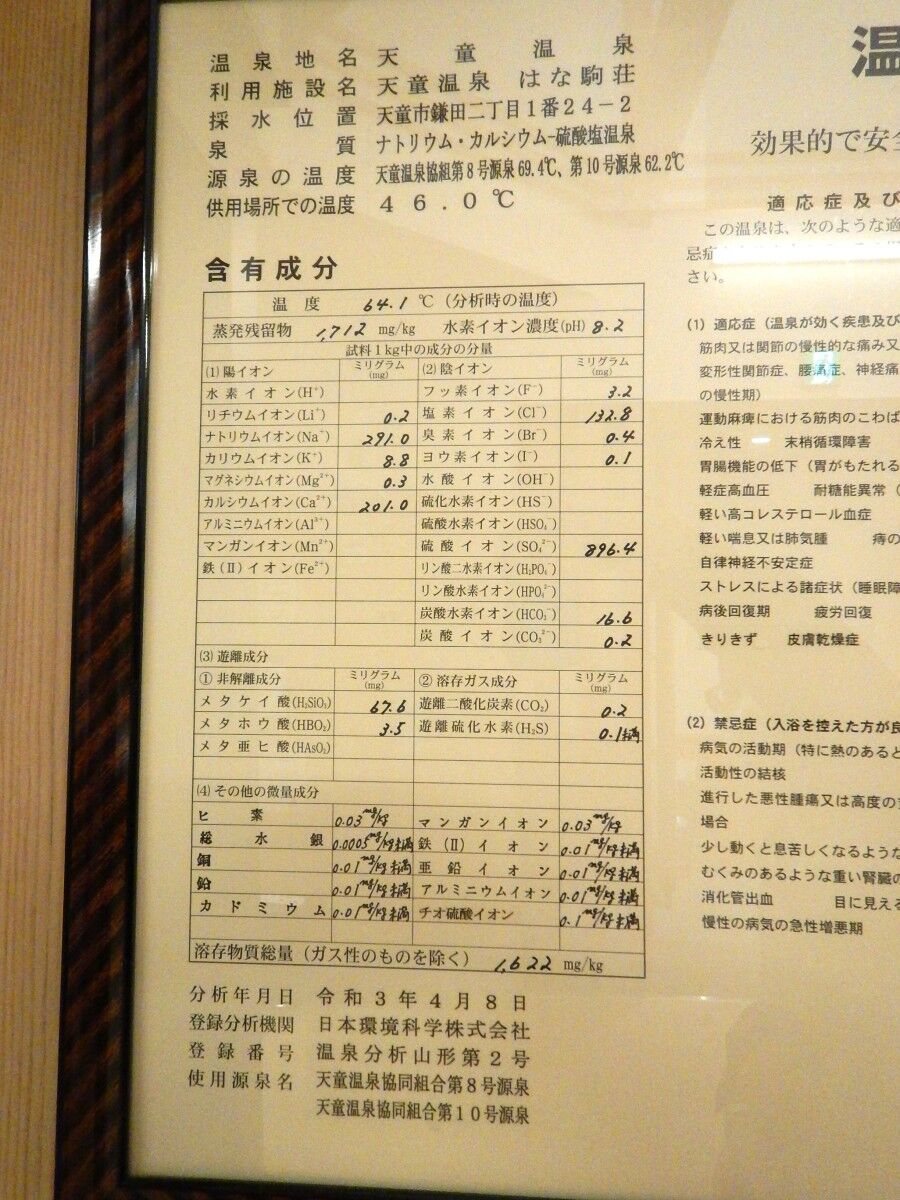 温泉地名 天童温泉
利用施設名 天童温泉 はな駒荘
採水位置 天童市鎌田二丁目1番24-2
泉質 ナトリウム・カルシウム-硫酸塩温泉
源泉の温度 天童温泉協組第8号源泉69.4℃、第10号源泉62.2℃
供用場所での温度 46.0℃
含有成分
温度 64.1 ℃(分析時の温度)
蒸発残留物 1,712 mg/kg 水素イオン濃度(pH) 8.2
試料1kg中の成分の分量
(1)陽イオン ミリグラム(mg) (2)陰イオン ミリグラム(mg)
水素イオン(H⁺) フッ素イオン(F⁻) 3.2
リチウムイオン(Li⁺) 0.2 塩素イオン(Cl⁻) 132.8
ナトリウムイオン(Na⁺) 291.0 臭素イオン(Br⁻) 0.4
カリウムイオン(K⁺) 8.8 ヨウ素イオン(I⁻) 0.1
マグネシウムイオン(Mg²⁺) 0.3 水酸イオン(OH⁻)
カルシウムイオン(Ca²⁺) 201.0 硫化水素イオン(HS⁻)
アルミニウムイオン(Al³⁺) 硫酸水素イオン(HSO₄⁻)
マンガンイオン(Mn²⁺) 硫酸イオン(SO₄²⁻) 896.4
鉄(II)イオン(Fe²⁺) リン酸二水素イオン(H₂PO₄⁻)
リン酸水素イオン(HPO₄²⁻)
炭酸水素イオン(HCO₃⁻) 16.6
炭酸イオン(CO₃²⁻) 0.2
(3)遊離成分
①非解離成分 ミリグラム(mg) ②溶存ガス成分 ミリグラム(mg)
メタケイ酸(H₂SiO₃) 67.6 遊離二酸化炭素(CO₂) 0.2
メタホウ酸(HBO₂) 3.5 遊離硫化水素(H₂S) 0.1未満
メタ亜ヒ酸(HAsO₂)
(4)その他の微量成分
ヒ素 0.03mg/kg マンガンイオン 0.03mg/kg
総水銀 0.0005mg/kg未満 鉄(II)イオン 0.01mg/kg未満
銅 0.01mg/kg未満 亜鉛イオン 0.01mg/kg未満
鉛 0.01mg/kg未満 アルミニウムイオン 0.01mg/kg未満
カドミウム 0.01mg/kg未満 チオ硫酸イオン 0.1mg/kg未満
溶存物質総量(ガス性のものを除く) 1,622 mg/kg
分析年月日 令和3年4月8日
登録分析機関 日本環境科学株式会社
登録番号 温泉分析山形第2号
使用源泉名 天童温泉協同組合第8号源泉
天童温泉協同組合第10号源泉
温
効果的で安全
適応症及び
この温泉は、次のような適
忌症
さい。
(1) 適応症(温泉が効く疾患及び
筋肉又は関節の慢性的な痛み又
変形性関節症、腰痛症、神経痛
の慢性期)
運動麻痺における筋肉のこわば
冷え性 末梢循環障害
胃腸機能の低下(胃がもたれる
軽症高血圧 耐糖能異常(
軽い高コレステロール血症
軽い喘息又は肺気腫 痔の
自律神経不安定症
ストレスによる諸症状(睡眠障
病後回復期 疲労回復
きりきず 皮膚乾燥症
(2) 禁忌症(入浴を控えた方が良
病気の活動期(特に熱のあると
活動性の結核
進行した悪性腫瘍又は高度の
場合
少し動くと息苦しくなるような
むくみのあるような重い腎臓の
消化管出血 目に見える
慢性の病気の急性増悪期